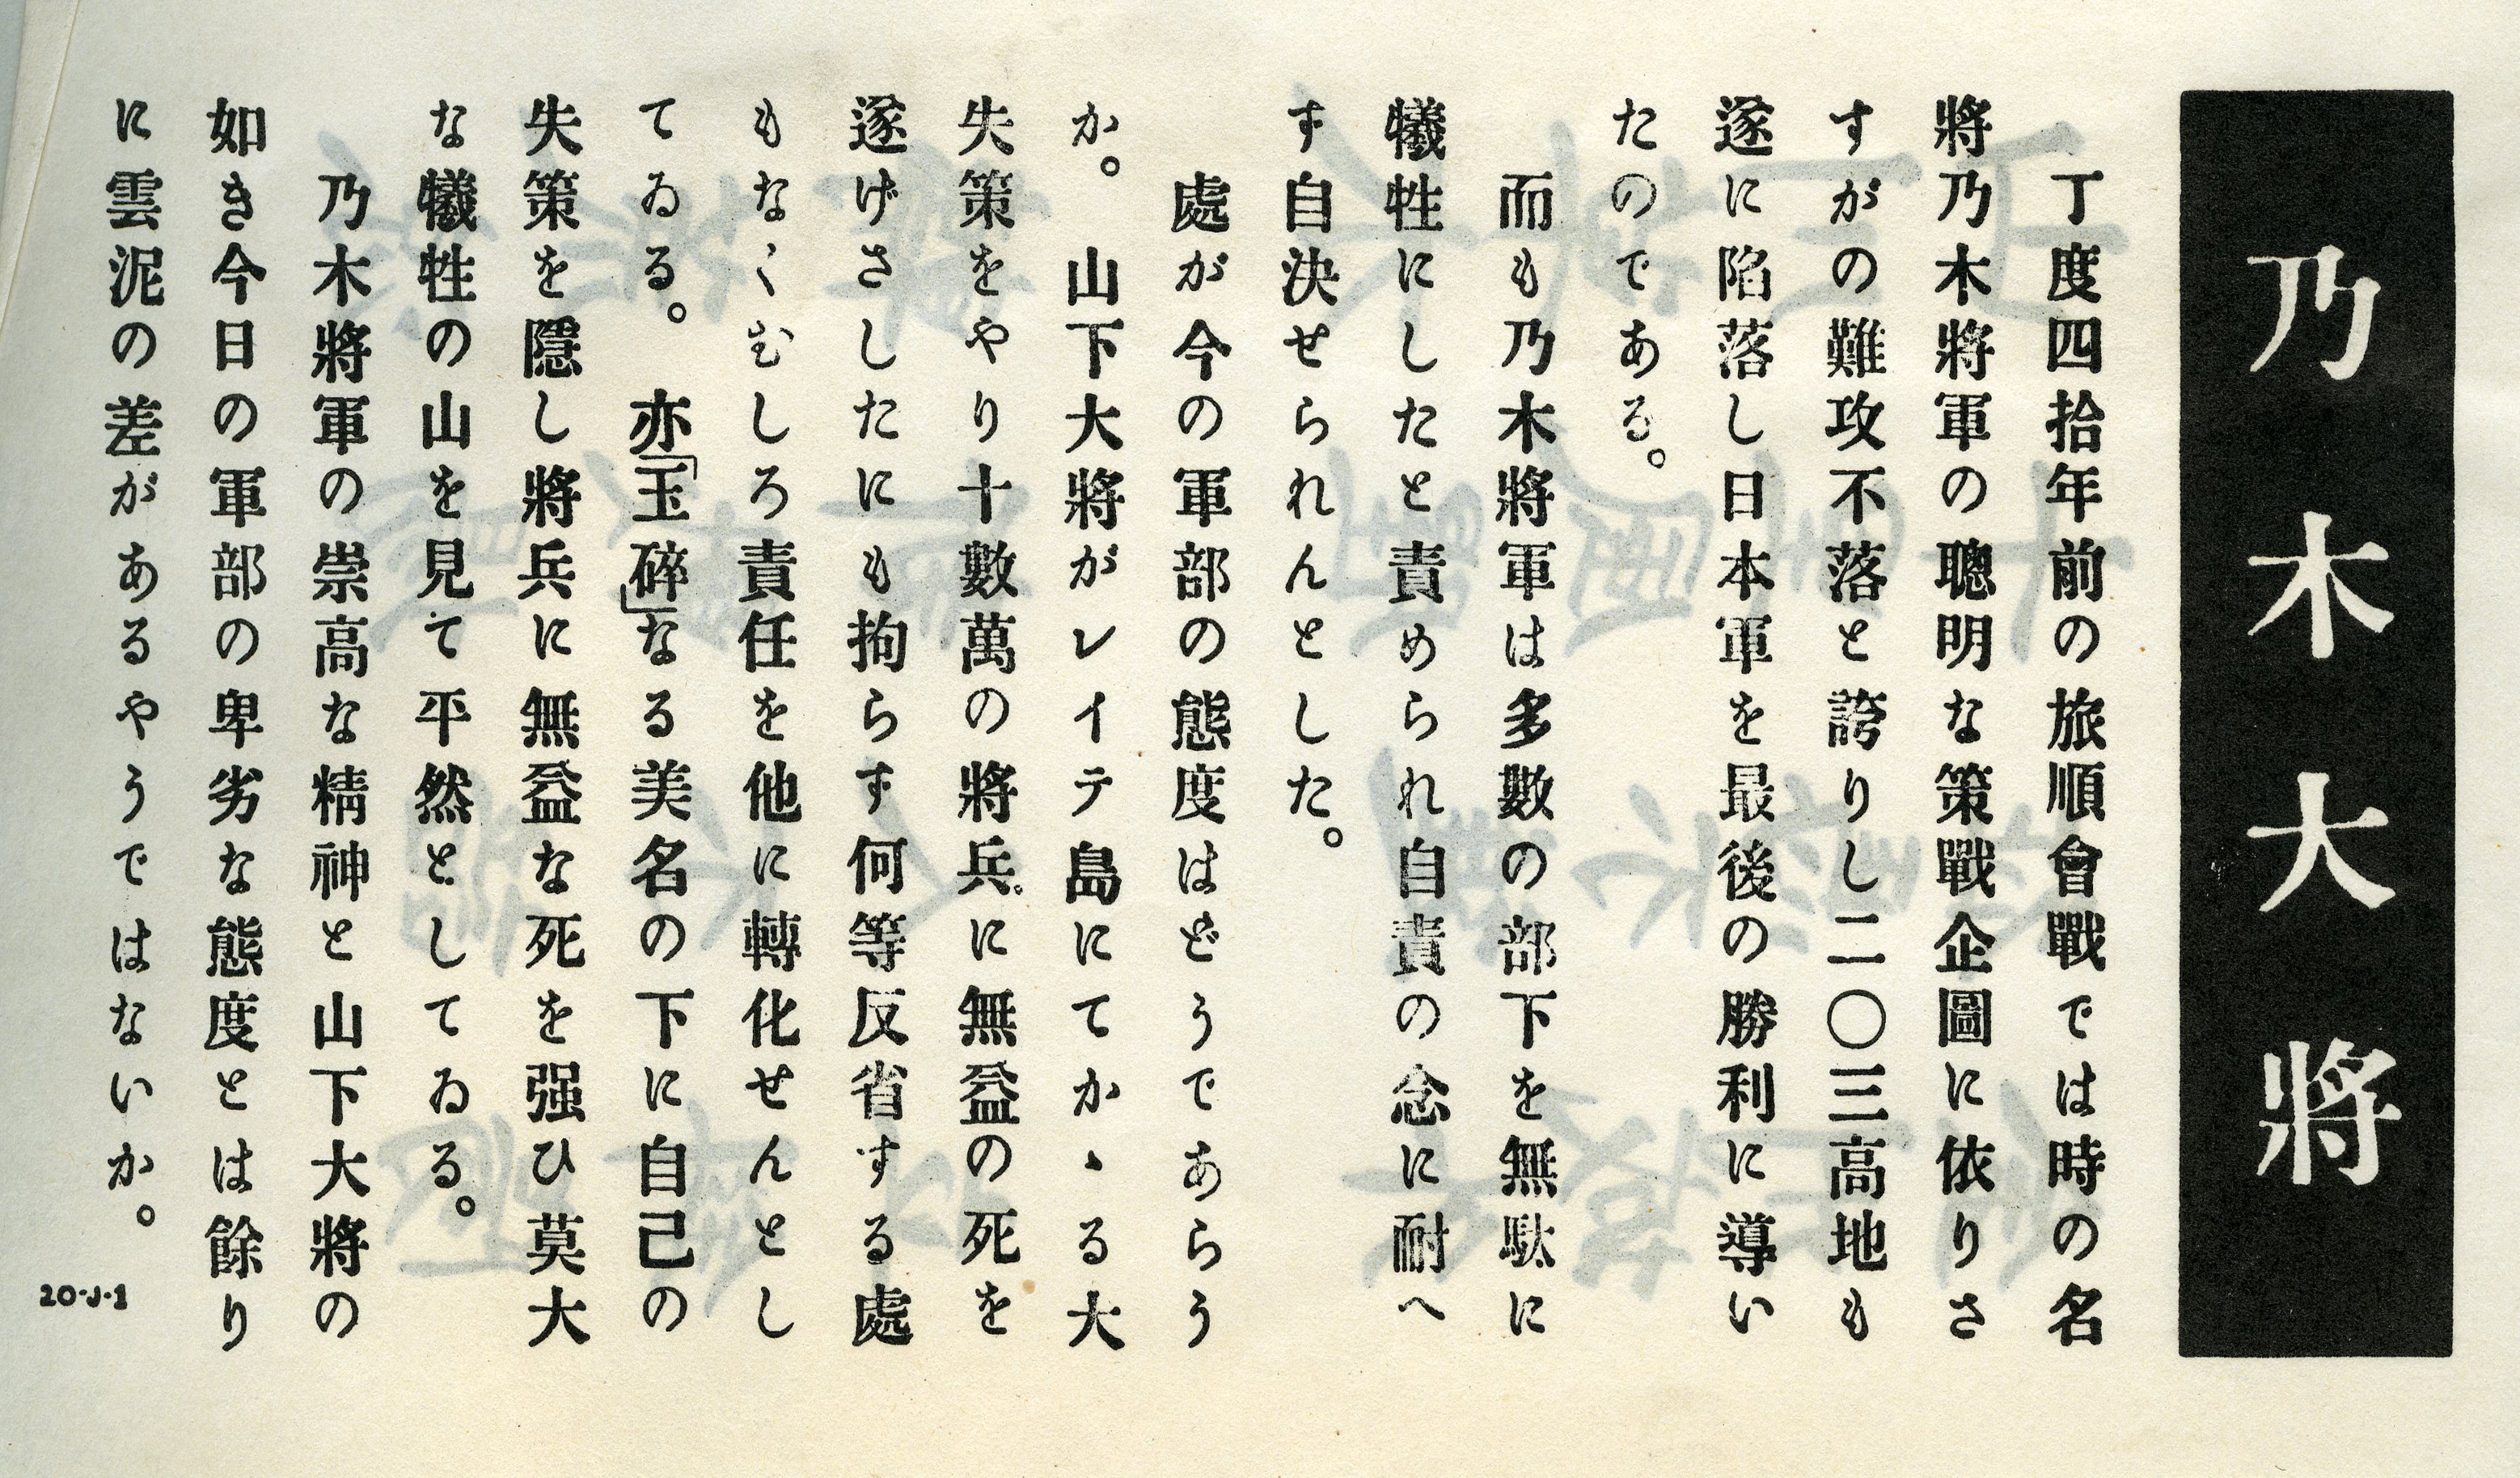 乃木大將
丁度四拾年前の旅順會戰では時の名
將乃木將軍の聰明な策戰企圖に依りさ
すがの難攻不落と誇りし二〇三高地も
遂に陷落し日本軍を最後の勝利に導い
たのである。
而も乃木將軍は多數の部下を無駄に
犧牲にしたと責められ自責の念に耐へ
す自決せられんとした。
處が今の軍部の態度はどうであらう
か。 山下大將がレイテ島にてかゝる大
失策をやり十數萬の將兵に無益の死を
遂げさしたにも拘らす何等反省する處
もなくむしろ責任を他に轉化せんとし
てゐる。 亦「玉碎」なる美名の下に自己の
失策を隱し將兵に無益な死を强ひ莫大
な犧牲の山を見て平然としてゐる。
乃木將軍の崇高な精神と山下大將の
如き今日の軍部の卑劣な態度とは餘り
に雲泥の差があるやうではないか。
20-J-1